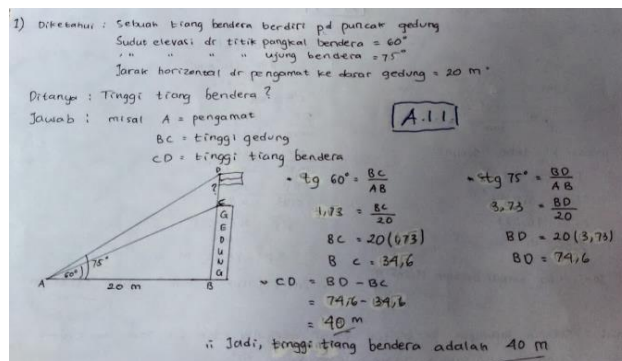 1) Diketahui : Sebuah tiang bendera berdiri pd puncak gedung
Sudut elevasi dr titik pangkal bendera = 60°
" " " " ujung bendera = 75°
Jarak horizontal dr pengamat ke dasar gedung = 20 m.
Ditanya : Tinggi tiang bendera ?
Jawab : misal A = pengamat
A.11
BC = tinggi gedung
CD = tinggi tiang bendera
• tg 60° = BC/AB
1,73 = BC/20
BC = 20(1,73)
BC = 34,6
• tg 75° = BD/AB
3,73 = BD/20
BD = 20(3,73)
BD = 74,6
D
?
C
GEDUNG
60° 75°
A 20 m B
• CD = BD - BC
= 74,6 - 34,6
= 40 m
∴ Jadi, tinggi tiang bendera adalah 40 m